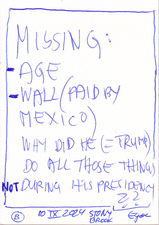 MISSING:
- AGE
- WALL (PAID BY
MEXICO)
WHY DID HE (= TRUMP)
DO ALL THOSE THINGS
NOT DURING HIS PRESIDENCY
??
8 10 IX 2024 STONY
BROOK